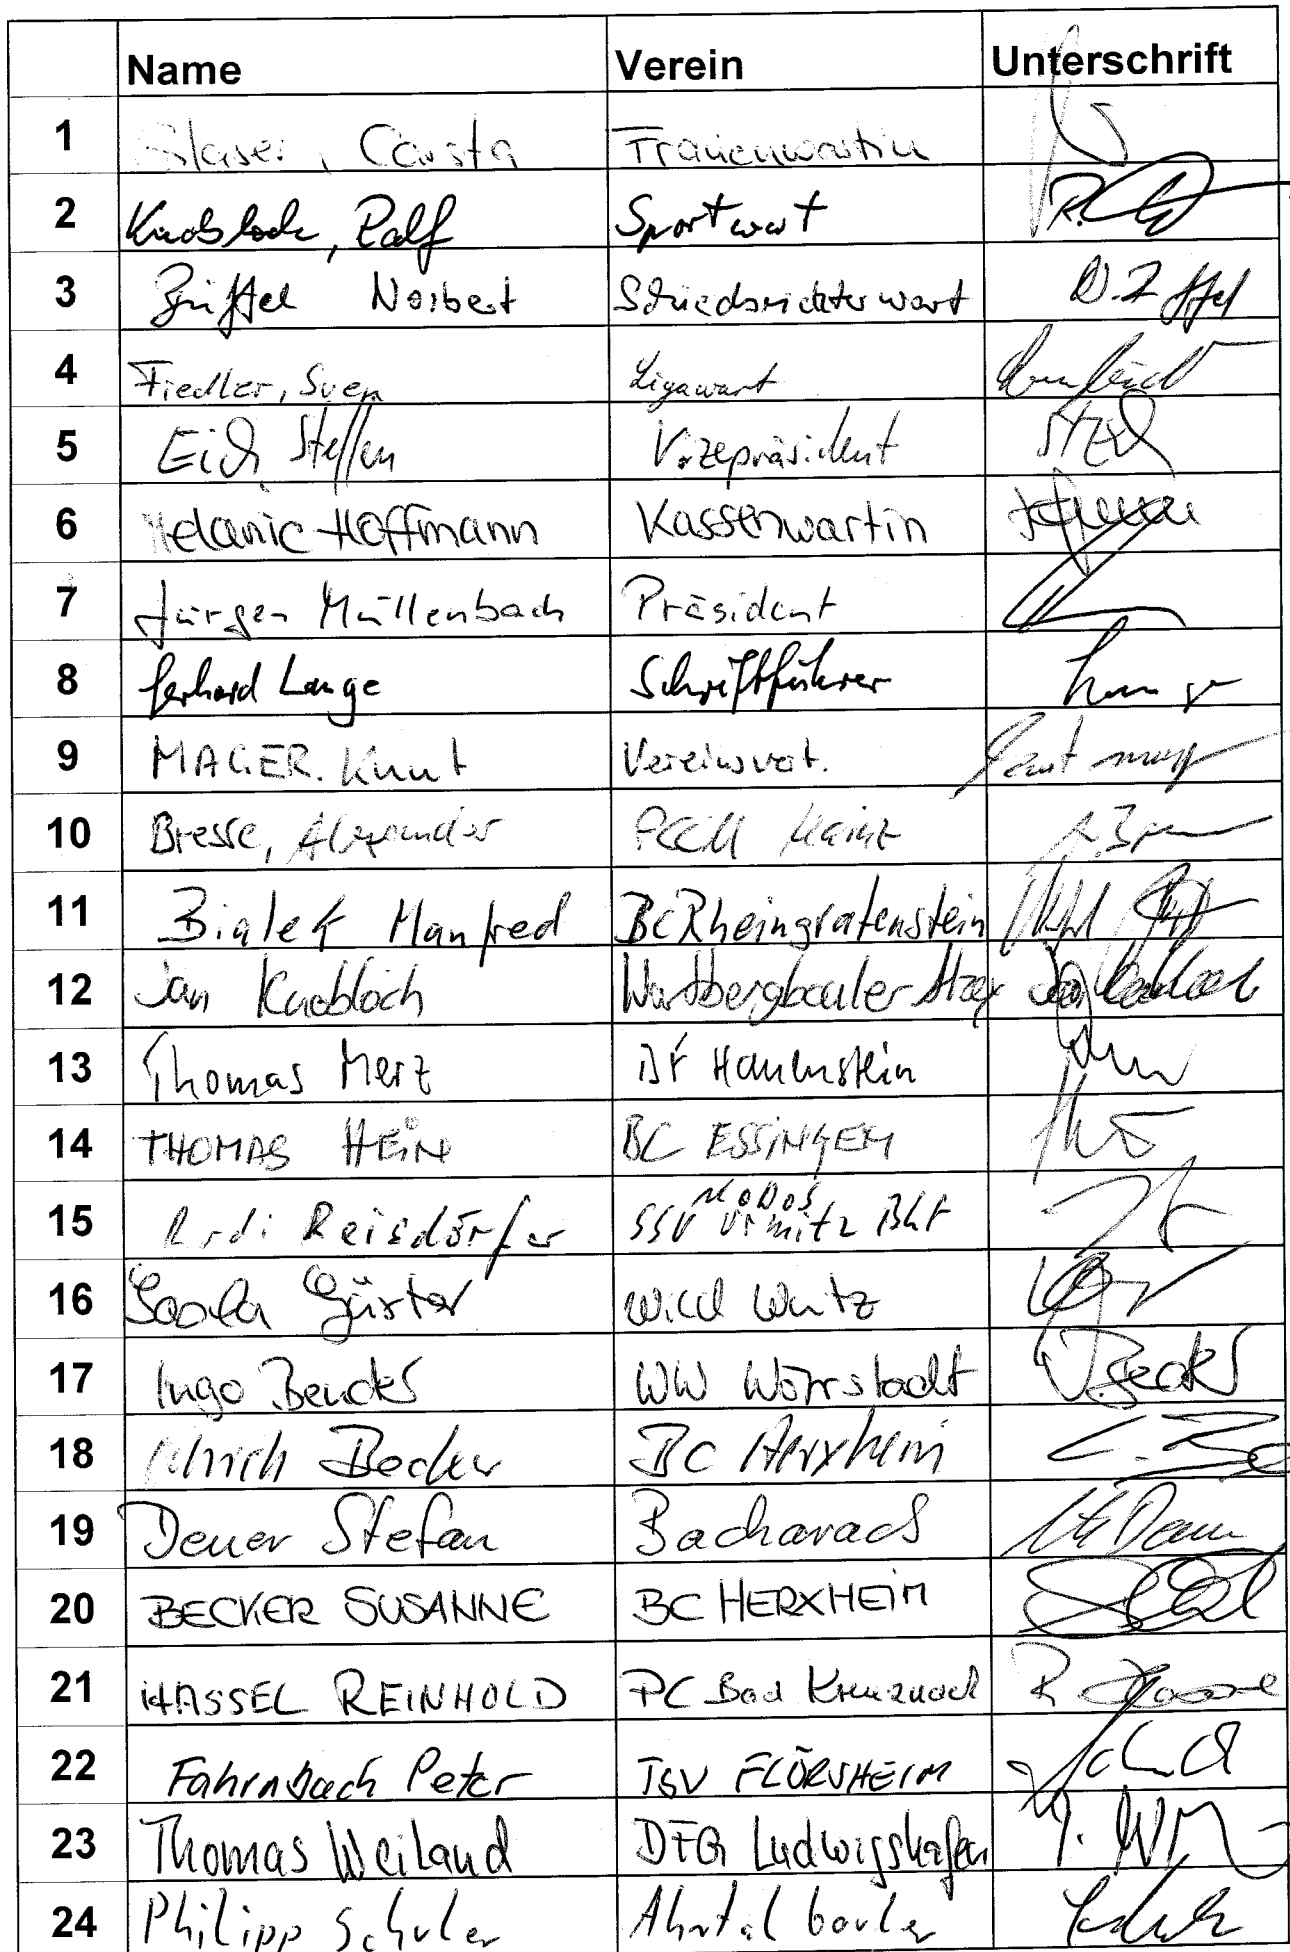 Name Verein Unterschrift
1 Glaser, Carsta Frauenwartin
2 Knobloch, Ralf Sportwart
3 Züffel Norbert Schiedsrichterwart N. Züffel
4 Fiedler, Sven Ligawart
5 Eich, Steffen Vizepräsident
6 Melanie Hoffmann Kassenwartin
7 Jürgen Müllenbach Präsident
8 Gerhard Lange Schriftführer Lange
9 MAGER. Knut Vereinsvert.
10 Bresse, Alexander PCCM Mainz
11 Bialek Manfred BC Rheingrafenstein
12 Jan Knobloch Wartbergbouler Jan Knobloch
13 Thomas Merz BF Hauenstein
14 THOMAS HEIN BC ESSINGEN
15 Rudi Reisdörfer SSV Urmitz Bhf
16 Wild Wutz
17 Ingo WW Wörrstadt
18 Ulrich Becker BC Herxheim
19 Deuer Stefan Bacharach
20 BECKER SUSANNE BC HERXHEIM
21 HASSEL REINHOLD PC Bad Kreuznach R. Hassel
22 Fahrnbach Peter TSV FLÖRSHEIM
23 Thomas Weiland DFG Ludwigshafen
24 Philipp Schuler Ahrtal bouler